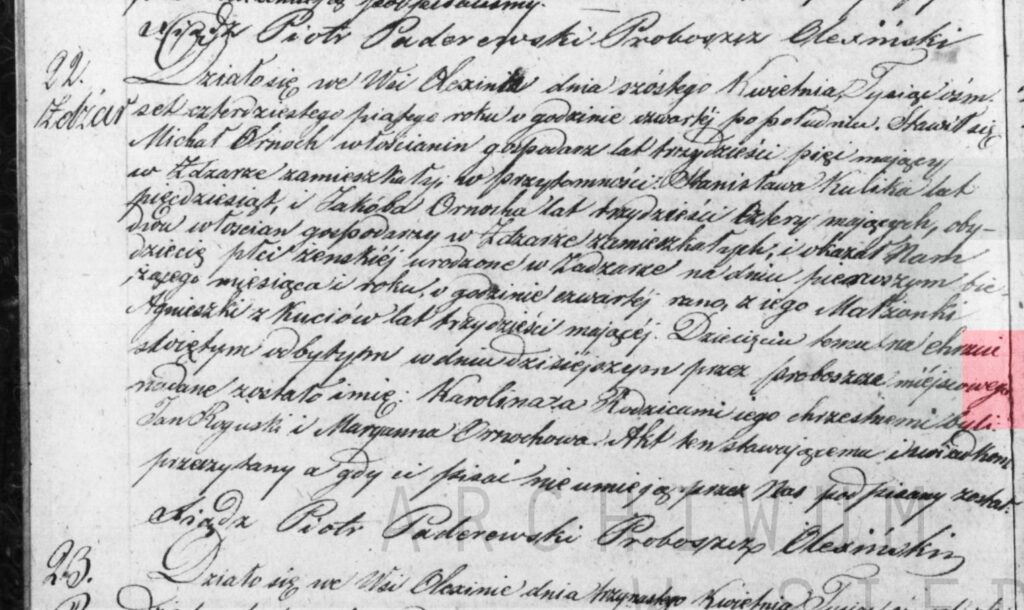 podpisaliśmy.
Xiądz Piotr Paderewski Proboszcz Olexiński
22.
Żdżar
Działo się we Wsi Olexinie dnia szóstego Kwietnia, Tysiąc ośm-
set czterdziestego piątego roku o godzinie czwartéj po południu. Stawił się
Michał Ornoch włościanin gospodarz lat trzydzieści pięć mający
w Zdzarze zamieszkały, w przytomności Stanisława Kulika lat
pięćdziesiąt, i Jakóba Ornocha lat trzydzieści cztery mających, oby-
dwu włościan gospodarzy w Zdzarze zamieszkałych, i okazał Nam
dziecię płci żeńskiéj urodzone w Zadzarze na dniu pierwszym bie-
żącego miesiąca i roku, o godzinie czwartéj rano, z iego Małżonki
Agnieszki z Kuciów lat trzydzieści mającéj. Dziecięciu temu na chrzcie
świętym odbytym w dniu dzisiejszym przez proboszcza miejscowego
nadane zostało imię Karolina, a Rodzicami iego chrzestnemi byli
Jan Roguski i Maryanna Ornochowa. Akt ten stawającemu i świadkom
przeczytany a gdy ci pisać nie umieją przez Nas podpisany został.
Xiądz Piotr Paderewski Proboszcz Olexiński
ARCHIWUM
23.
Działo się we Wsi Olexinie dnia trzynastego Kwietnia